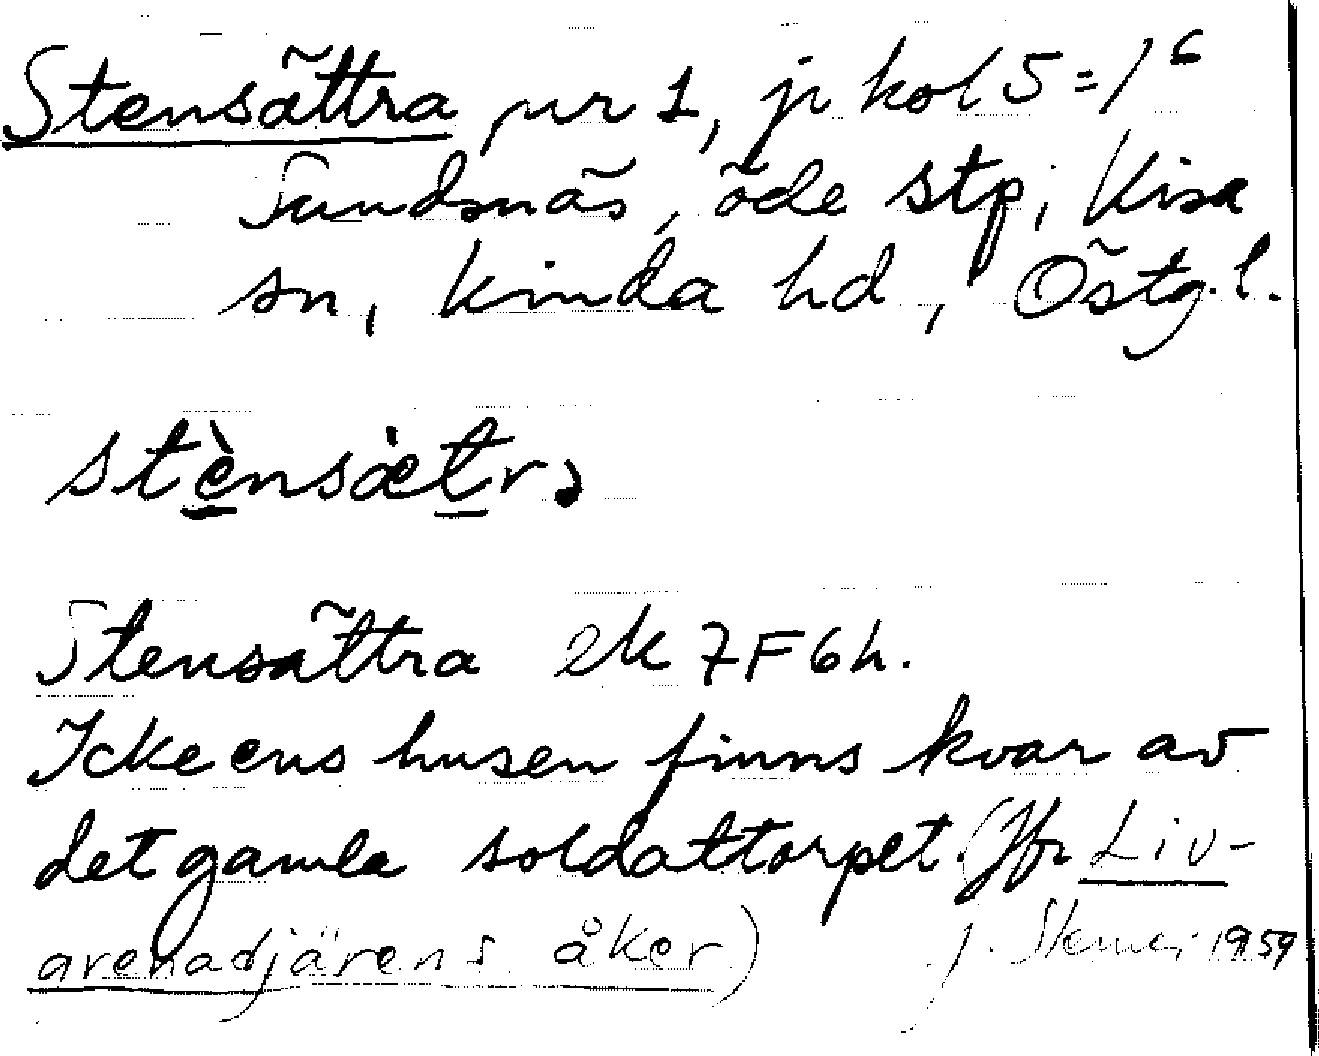 Stensättra, ur 1, jr kol 5 = 1⁶
Sundsnäs, öde stp, Kisa
sn, Kinda hd, Östg. l.
stènsætrə
Stensättra ek 7F6h.
Icke ens husen finns kvar av
det gamla soldattorpet. (Jfr Liv-
grenadjärens åker)
J. 1959